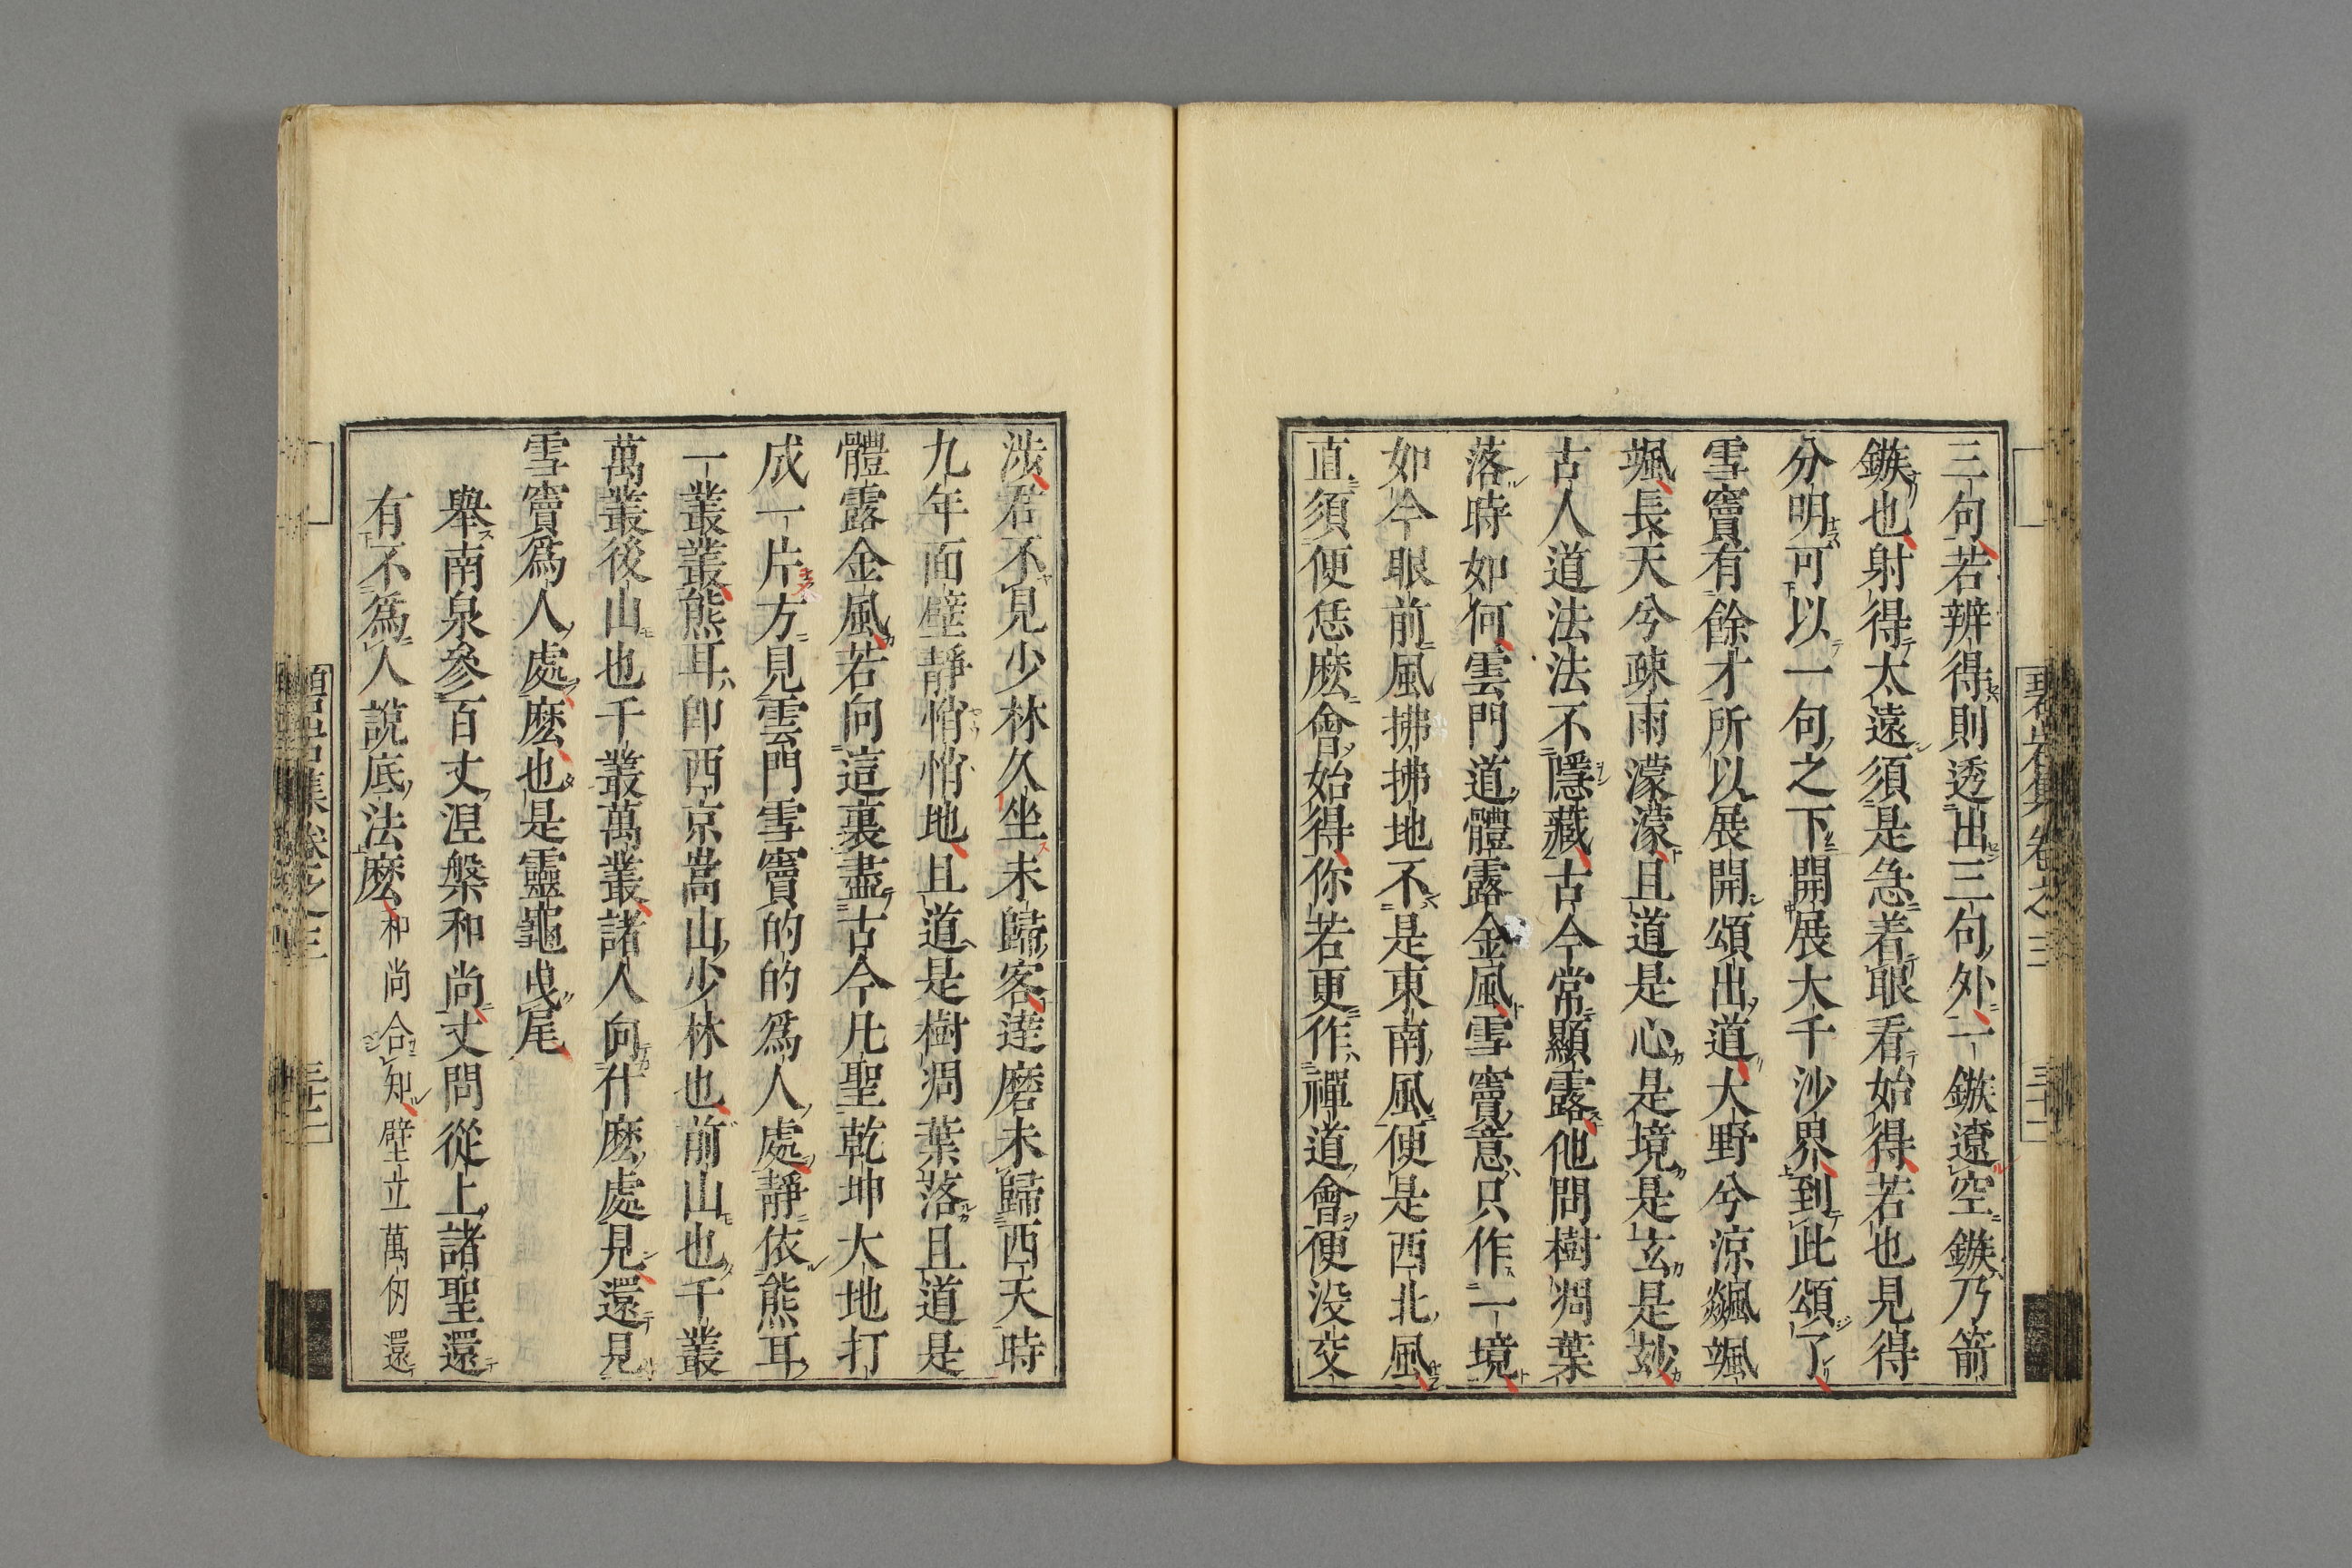 三句若辨得則透出三句外一鏃遼空鏃乃箭
鏃也射得太遠須是急着眼看始得若也見得
分明可以一句之下開展大千沙界到此頌了
雪竇有餘才所以展開頌出道大野兮涼飇颯
颯長天兮疎雨濛濛且道是心是境是玄是妙
古人道法法不隱藏古今常顯露他問樹凋葉
落時如何雲門道體露金風雪竇意只作一境
如今眼前風拂拂地不是東南風便是西北風
直須便恁麽會始得你若更作禪道會便没交
涉君不見少林久坐未歸客達磨未歸西天時
九年面壁靜悄悄地且道是樹凋葉落且道是
體露金風若向這裏盡古今凡聖乾坤大地打
成一片方見雲門雪竇的的爲人處靜依熊耳
一叢叢熊耳即西京嵩山少林也前山也千叢
萬叢後山也千叢萬叢諸人向什麽處見還見
雪竇爲人處麽也是靈龜曵尾
舉南泉參百丈涅槃和尚丈問從上諸聖還
有不爲人説底法麽和尚合知壁立萬仞還
碧岩集卷之三
三十二